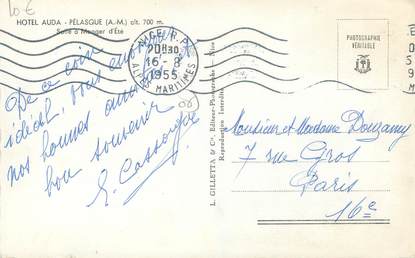 10 €
HOTEL AUDA - PÉLASQUE (A.-M.) alt. 700 m.
Salle à Manger d'Été
NICE R.P.
20H30
16-8
1955
ALPES MARITIMES
PHOTOGRAPHIE
VÉRITABLE
De ce coin
idéal, vous envoyons
nos bonnes amitiés
bon souvenir
L. GILLETTA & Cie, Editeur-Photographe - Nice
Reproduction Interdite
Monsieur et Madame Douzamy
7 rue Gros
Paris
16e